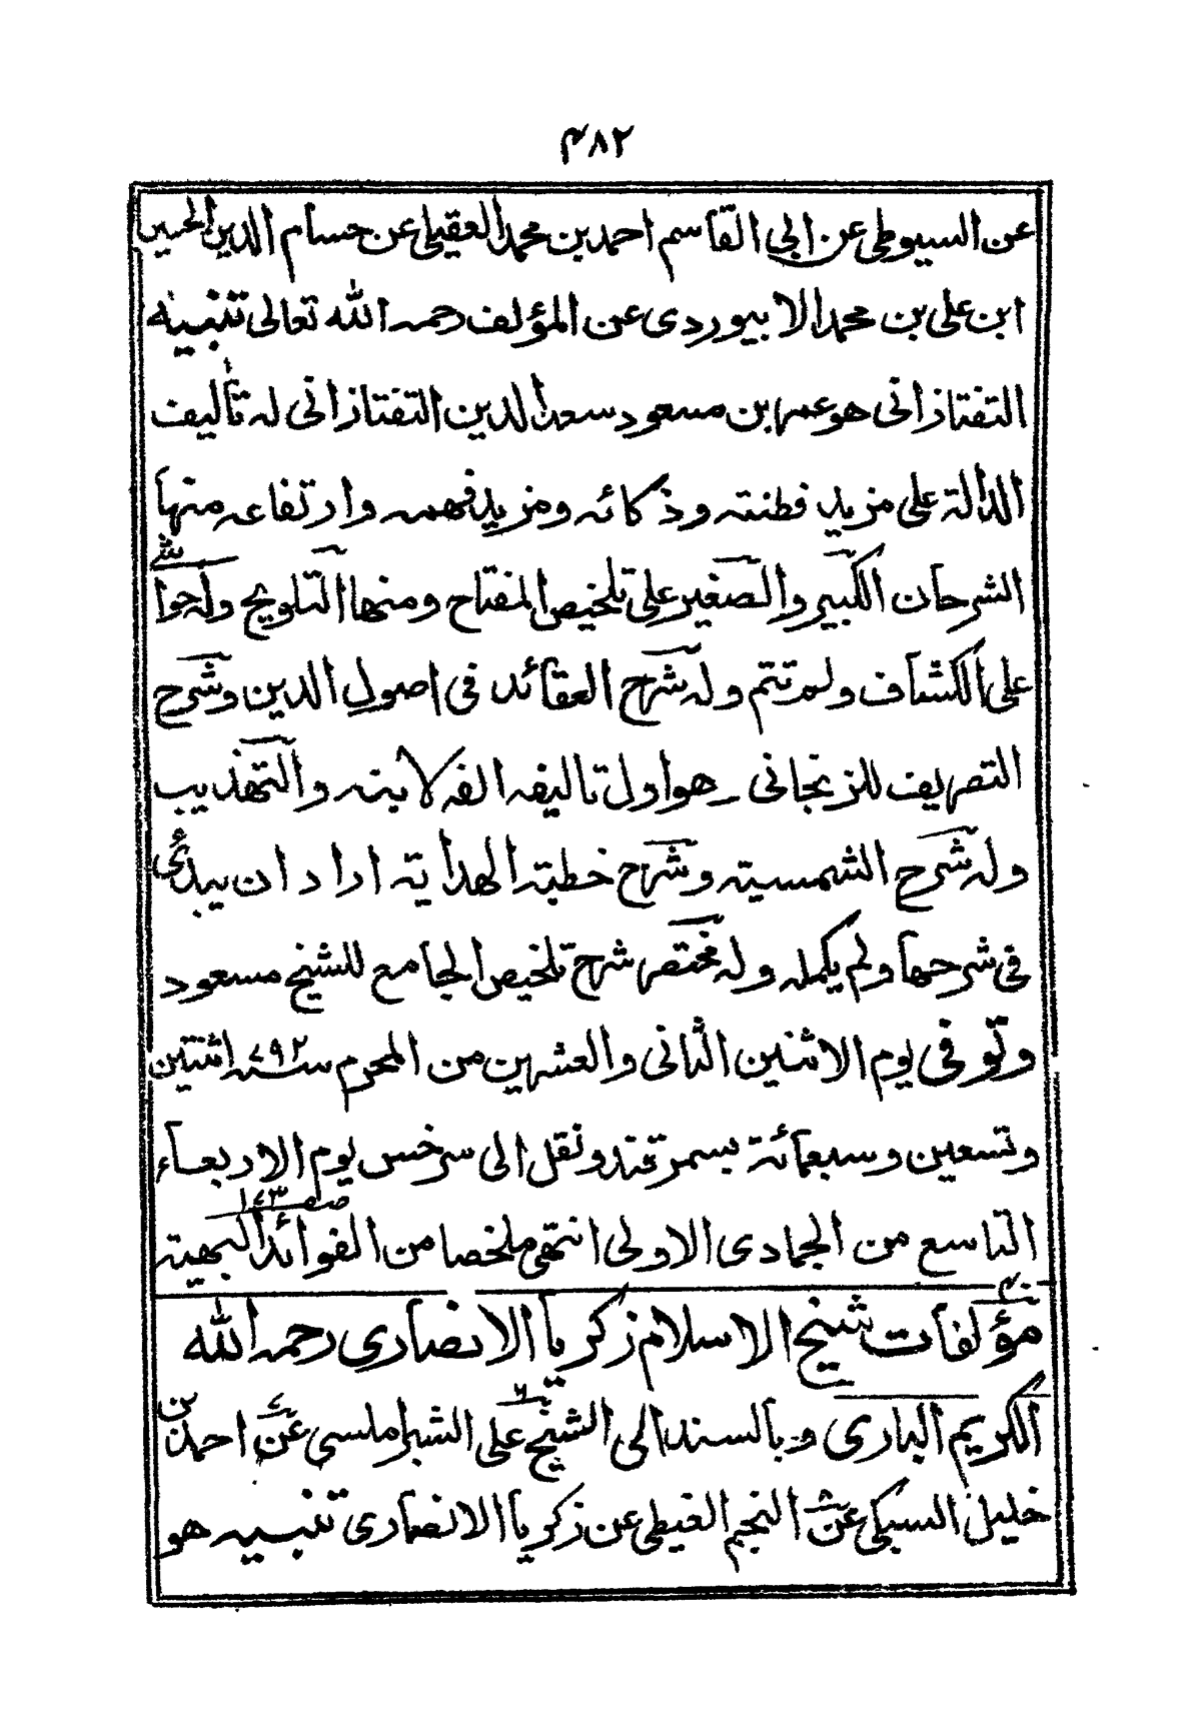 ٤٨٢
عن السيوطى عن ابى القاسم احمد بن محمد العقيلى عن حسام الدين الحسين
ابن على بن محمد الابيوردى عن المؤلف رحمه الله تعالى تنبيه
التفتازانى هو عمر ابن مسعود سعد الدين التفتازانى له تآليف
الدالة على مزيد فطنته وذكائه ومزيد فهمه وارتفاعه منها
الشرحان الكبير والصغير على تلخيص المفتاح ومنها التلويح وله حواشى
على الكشاف ولم تتم وله شرح العقائد فى اصول الدين وشرح
التصريف للزنجانى وهو اول تاليفه الفه لابنه والتهذيب
وله شرح الشمسيته وشرح خطبته الهداية اراد ان يبدئ
فى شرحها ولم يكمله وله مختصر شرح تلخيص الجامع للشيخ مسعود
وتوفى يوم الاثنين الثانى والعشرين من المحرم سنه ٧٩٢ اثنتين
وتسعين وسبعمائة بسمرقند ونقل الى سرخس يوم الاربعاء
التاسع من الجمادى الاولى انتهى ملخصا من الفوائد البهيته صـ ١٤٣
مؤلفات شيخ الاسلام زكريا الانصارى رحمه الله
الكريم البارى وبالسند الى الشيخ على الشبراملسى عن احمد بن
خليل السبكى عن النجم الغيطى عن زكريا الانصارى تنبيه هو